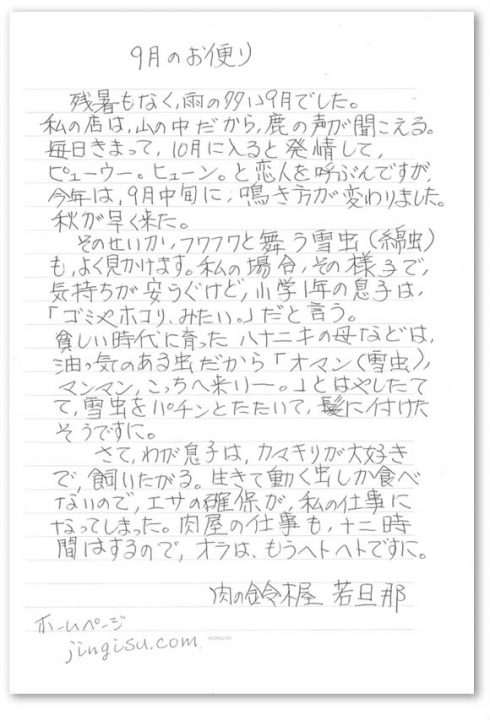 9月のお便り
残暑もなく、雨の多い9月でした。
私の店は、山の中だから、鹿の声が聞こえる。
毎日きまって、10月に入ると発情して、
ピューウー。ヒューン。と恋人を呼ぶんですが、
今年は、9月中旬に、鳴き方が変わりました。
秋が早く来た。
そのせいか、フワフワと舞う雪虫(綿虫)
も、よく見かけます。私の場合、その様子で、
気持ちが安らぐけど、小学1年の息子は、
「ゴミや、ホコリ、みたい。」だと言う。
貧しい時代に育ったハナニキの母などは、
油っ気のある虫だから「オマン(雪虫)、
マンマン、こっちへ来りー。」とはやしたて
て、雪虫をパチンとたたいて、髪に付けた
そうですに。
さて、わが息子は、カマキリが大好き
で、飼いたがる。生きて動く虫しか食べ
ないので、エサの確保が、私の仕事に
なってしまった。肉屋の仕事も、十二時
間はするので、オラは、もうヘトヘトですに。
肉の鈴木屋 若旦那
ホームページ
jingisu.com
KOKUYO